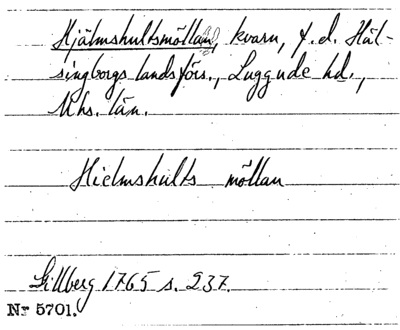 Hjälmshultsmöllan, kvarn, f.d. Häl-
singborgs landsförs., Luggude hd.,
Mhs. län.
Hielmshults möllan
Gillberg 1765 s. 237.
Nr 5701.